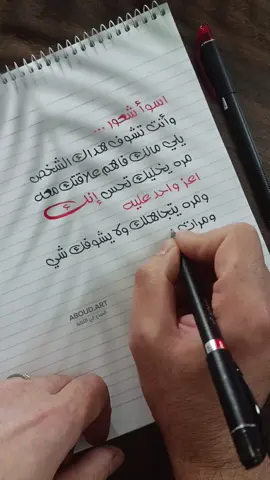 اسوأ شعور ...
وأنت تشوف هداك الشخص
يلي مالك فاهم علاقتك معه
مره يخليك تحس إنك
اعز واحد عليه
ومره يتجاهلك ولا يشوفك شي
ومرات
ABOUD.ART